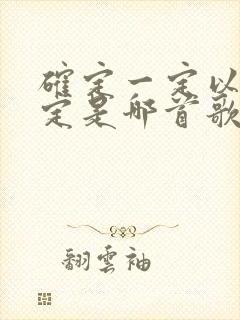 確定一定以
定是哪首歌
翻雲袖